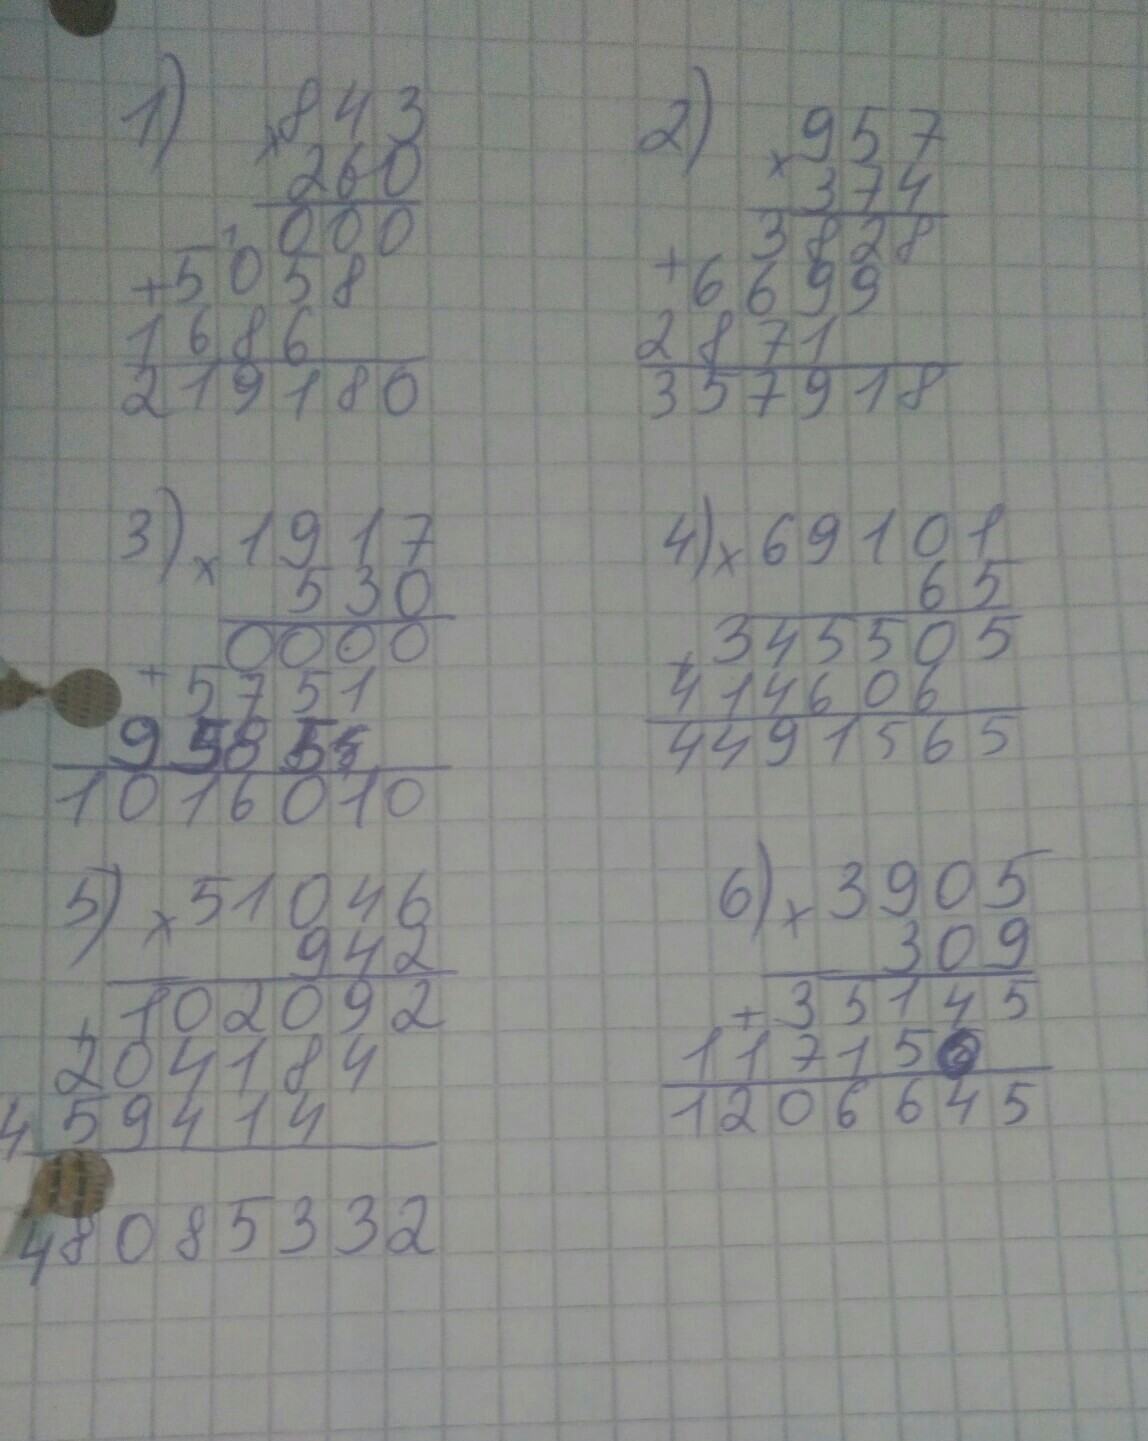 1) 843
× 260
000
1
+ 5058
1686
219180
2) 957
× 374
3828
+ 6699
2871
357918
3) × 1917
530
0000
+ 5751
9585
1016010
4) × 69101
65
345505
+ 414606
4491565
5) × 51046
942
102092
+ 204184
459414
48085332
6) × 3905
309
+ 35145
117150
1206645